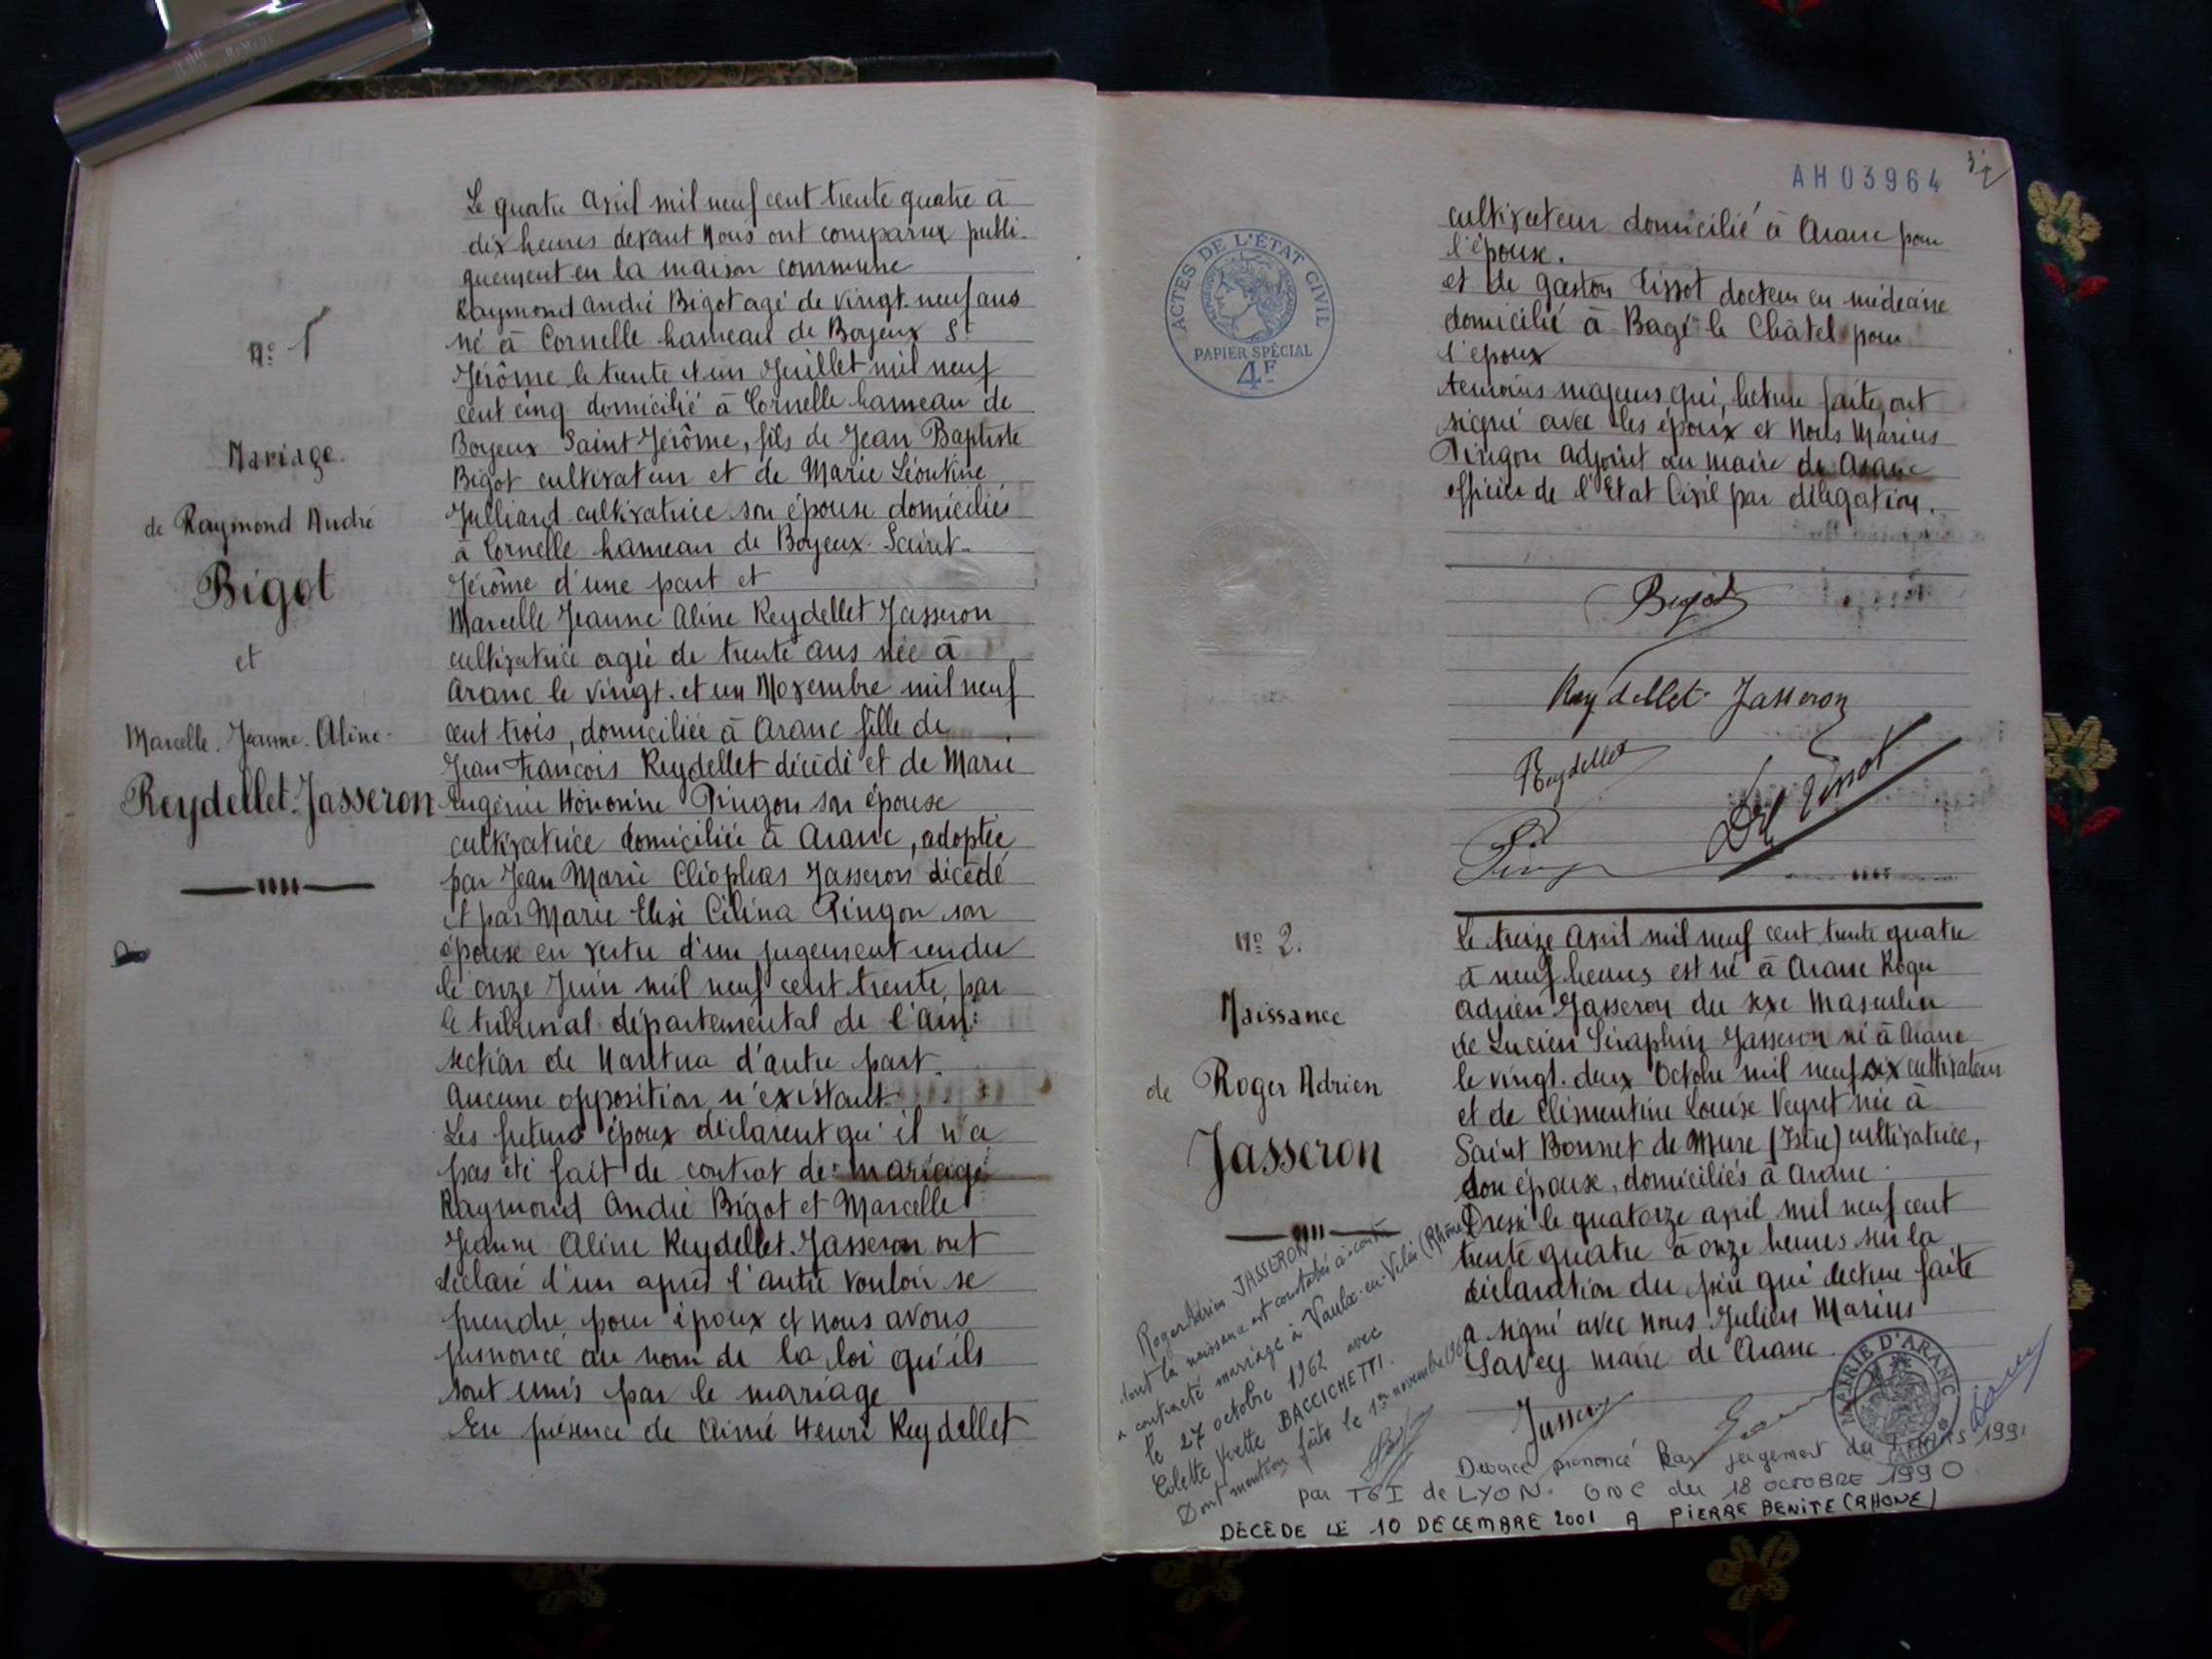 Nº 1
Mariage.
de Raymond André
Bigot
et
Marcelle. Jeanne. Aline.
Reydellet. Jasseron
Le quatre avril mil neuf cent trente quatre à
dix heures devant Nous ont comparu publi-
quement en la maison commune
Raymond André Bigot agé de vingt. neuf ans
né à Cornelle hameau de Boyeux St
Jérôme le trente et un Juillet mil neuf
cent cinq domicilié à Cornelle hameau de
Boyeux Saint Jérôme, fils de Jean Baptiste
Bigot cultivateur et de Marie Léontine
Julliard cultivatrice son épouse domiciliés
à Cornelle hameau de Boyeux. Saint-
Jérôme d'une part et
Marcelle Jeanne Aline Reydellet Jasseron
cultivatrice agée de trente ans née à
Aranc le vingt. et un Novembre mil neuf
cent trois, domiciliée à Aranc fille de
Jean François Reydellet décédé et de Marie
Eugénie Honorine Pingon son épouse
cultivatrice domiciliée à Aranc, adoptée
par Jean Marie Cléophas Jasseron décédé
et par Marie Elise Célina Pingon son
épouse en vertu d'un jugement rendu
le onze Juin mil neuf cent trente, par
le tribunal départemental de l'Ain:
section de Nantua d'autre part.
Aucune opposition n'existant
Les futurs époux déclarent qu'il n'a
pas été fait de contrat de mariage
Raymond André Bigot et Marcelle
Jeanne Aline Reydellet. Jasseron ont
déclaré d'un après l'autre vouloir se
prendre pour époux et nous avons
prononcé au nom de la loi qu'ils
sont unis par le mariage
En présence de Aimé Henri Reydellet
AH03964
ACTES DE L'ÉTAT CIVIL
PAPIER SPÉCIAL
4F
cultivateur domicilié à Aranc pour
l'épouse.
et de Gaston Tissot docteur en médecine
domicilié à Bagé le Châtel pour
l'époux
témoins majeurs qui, lecture faite, ont
signé avec les époux et Nous Marius
Pingon adjoint au maire de Aranc
officier de l'Etat Civil par délégation.
Bigot
Reydellet. Jasseron
Reydellet
Dr Tissot
Ping
Nº 2.
Naissance
de Roger Adrien
Jasseron
Le treize Avril mil neuf cent trente quatre
à neuf heures est né à Aranc Roger
Adrien Jasseron du sexe masculin
de Lucien Séraphin Jasseron né à Aranc
le vingt. deux Octobre mil neuf six cultivateur
et de Clémentine Louise Veyret née à
Saint Bonnet de Mure (Isère) cultivatrice,
son épouse, domiciliés à Aranc.
Dressé le quatorze avril mil neuf cent
trente quatre à onze heures sur la
déclaration du père qui lecture faite
a signé avec nous Julien Marius
Savey maire de Aranc.
Jasseron
MAIRIE D'ARANC
Roger Adrien JASSERON
dont la naissance est constatée ci-contre
a contracté mariage à Vaulx-en-Velin (Rhône)
le 27 octobre 1962 avec
Colette Yvette BACCICHETTI.
Dont mention faite le 1er novembre
Divorce prononcé par jugement du 1991
par TGI de LYON. ONC du 18 OCTOBRE 1990
DÉCÉDÉ LE 10 DECEMBRE 2001 A PIERRE BENITE (RHONE)